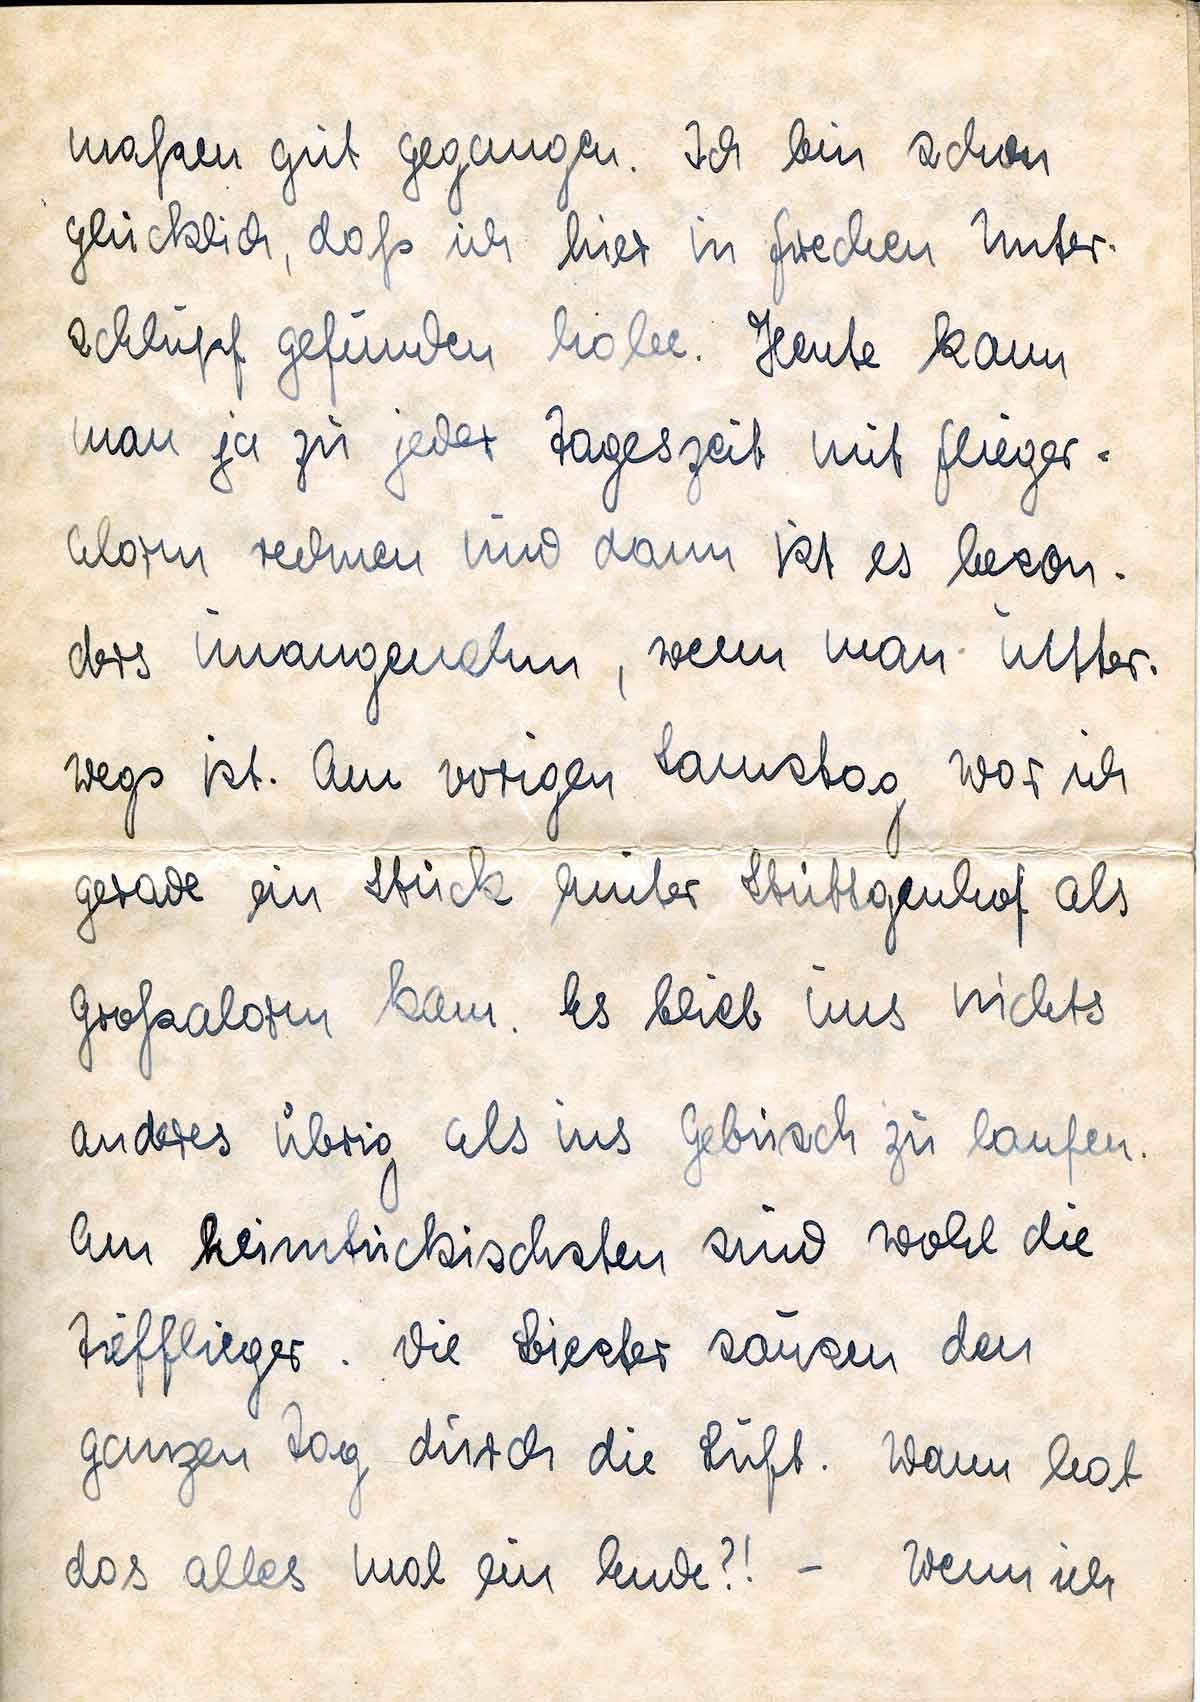 maßen gut gegangen. Ich bin schon
glücklich, daß ich hier in Frechen Unter-
schlupf gefunden habe. Heute kann
man ja zu jeder Tageszeit mit Flieger-
alarm rechnen und dann ist es beson-
ders unangenehm, wenn man unter-
wegs ist. Am vorigen Samstag war ich
gerade ein Stück hinter Stüttgenhof als
Großalarm kam. Es blieb uns nichts
anderes übrig als ins Gebüsch zu laufen.
Am heimtückischsten sind wohl die
Tiefflieger. Die Biester sausen den
ganzen Tag durch die Luft. Wann hat
das alles mal ein Ende?! – Wenn ich